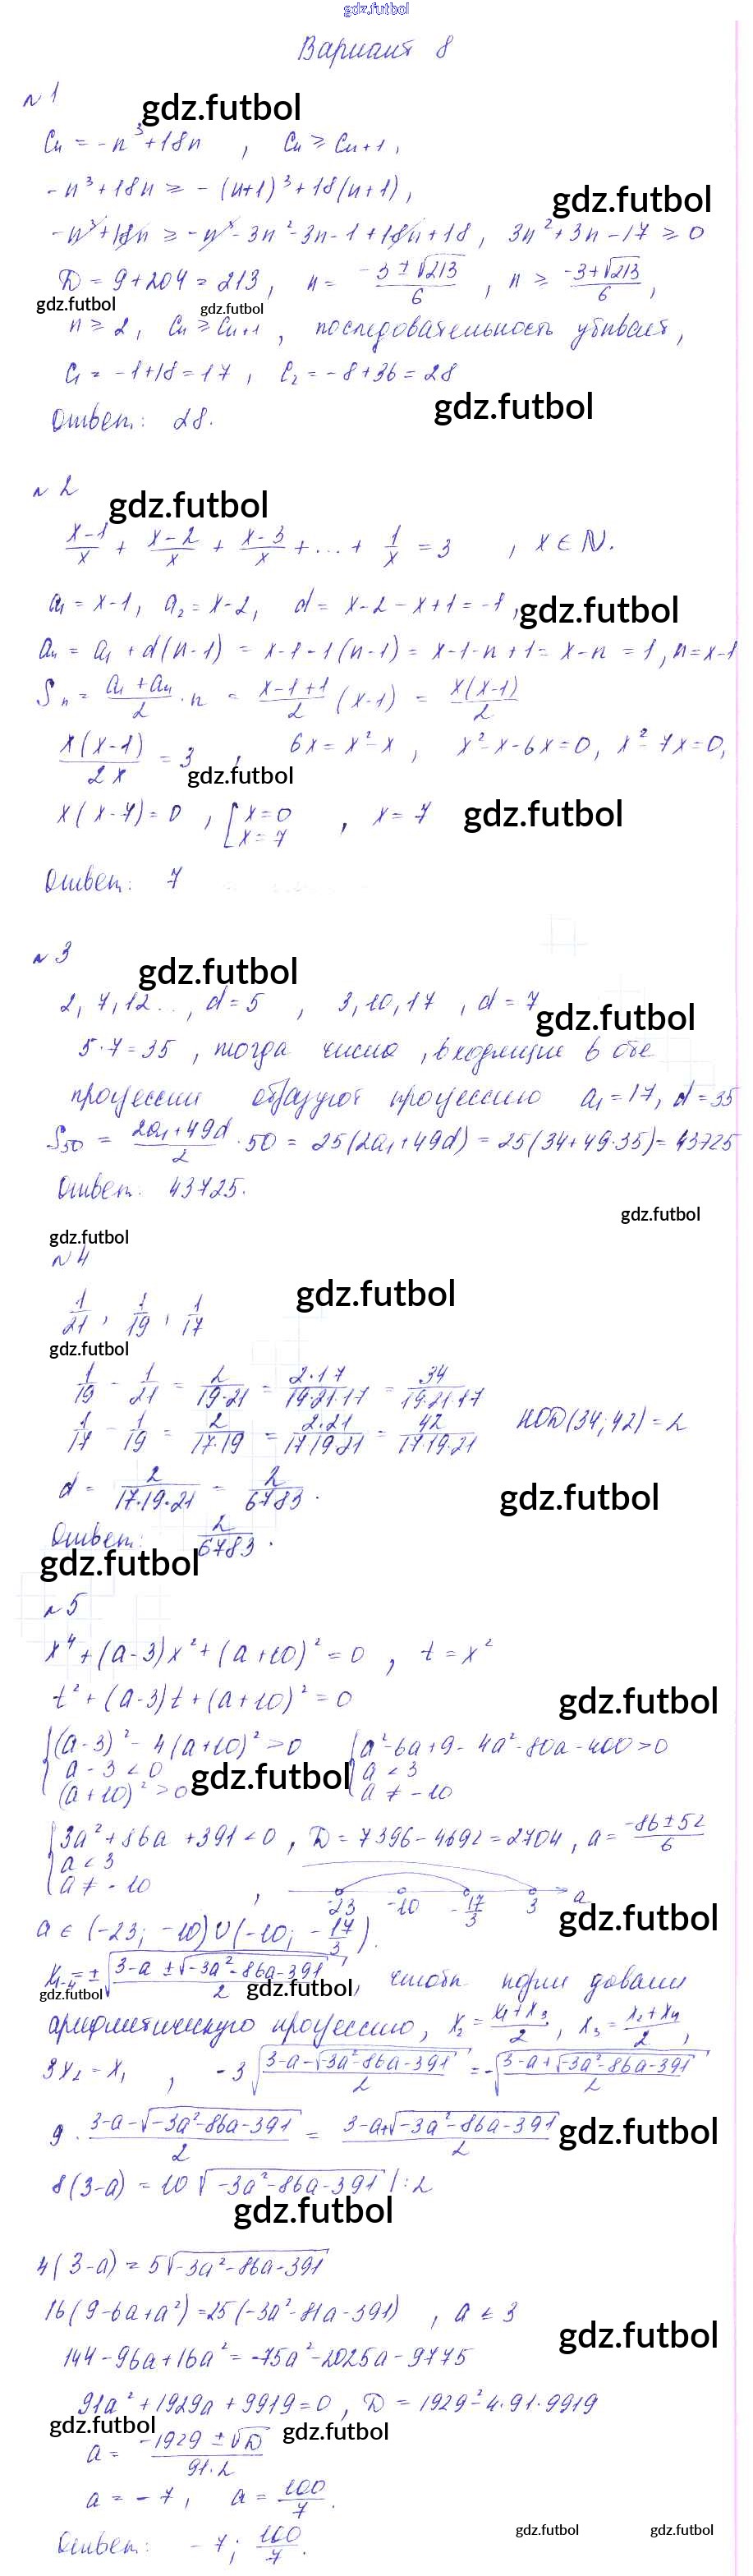 gdz.futbol
Вариант 8
№1
gdz.futbol
Cn = -n³+18n , Cn ≥ Cn+1,
-n³+18n ≥ -(n+1)³+18(n+1), gdz.futbol
-n³+18n ≥ -n³-3n²-3n-1+18n+18, 3n²+3n-17 ≥ 0
D = 9+204 = 213, n = (-3±√213)/6 , n ≥ (-3+√213)/6 ,
gdz.futbol gdz.futbol
n ≥ 2, Cn ≥ Cn+1 , последовательность убывает,
C1 = -1+18 = 17 , C2 = -8+36 = 28
gdz.futbol
Ответ: 28.
№2
gdz.futbol
(x-1)/x + (x-2)/x + (x-3)/x + ... + 1/x = 3 , x ∈ N.
a1 = x-1, a2 = x-2, d = x-2-x+1 = -1, gdz.futbol
an = a1 + d(n-1) = x-1-1(n-1) = x-1-n+1 = x-n = 1, n = x-1
Sn = (a1+an)/2 · n = (x-1+1)/2 (x-1) = x(x-1)/2
x(x-1)/2x = 3 , 6x = x²-x , x²-x-6x=0, x²-7x=0,
gdz.futbol
x(x-7)=0 , [x=0 x=7 , x=7 gdz.futbol
Ответ: 7
№3
gdz.futbol
2, 7, 12..., d=5 , 3, 10, 17 , d=7
gdz.futbol
5·7=35 , тогда числа , входящие в обе
прогрессии образуют прогрессию a1=17, d=35
S50 = (2a1+49d)/2 · 50 = 25(2a1+49d) = 25(34+49·35) = 43725
Ответ. 43725.
gdz.futbol
gdz.futbol
№4
gdz.futbol
1/21 , 1/19 , 1/17
gdz.futbol
1/19 - 1/21 = 2/(19·21) = 2·17/(19·21·17) = 34/(19·21·17)
1/17 - 1/19 = 2/(17·19) = 2·21/(17·19·21) = 42/(17·19·21) НОД(34; 42) = 2
d = 2/(17·19·21) = 2/6783 . gdz.futbol
Ответ: 2/6783 .
gdz.futbol
№5
x⁴+(a-3)x²+(a+10)²=0 , t=x²
t²+(a-3)t+(a+10)²=0 gdz.futbol
{(a-3)²-4(a+10)²>0 {a²-6a+9-4a²-80a-400>0
a-3<0 a<3
(a+10)²>0 gdz.futbol a≠-10
{3a²+86a+391<0 , D=7396-4692=2704, a=(-86±52)/6
a<3
a≠-10 , -23 -10 -17/3 3 a
gdz.futbol
a ∈ (-23; -10)∪(-10; -17/3).
x1-4=±√((3-a±√(-3a²-86a-391))/2), чтобы корни давали
gdz.futbol gdz.futbol
арифметическую прогрессию, x2=(x1+x3)/2, x3=(x2+x4)/2,
3x2=x1 , -3√((3-a-√(-3a²-86a-391))/2) = -√((3-a+√(-3a²-86a-391))/2)
9·(3-a-√(-3a²-86a-391))/2 = (3-a+√(-3a²-86a-391))/2 gdz.futbol
8(3-a) = 10√(-3a²-86a-391) |:2
gdz.futbol
4(3-a) = 5√(-3a²-86a-391)
16(9-6a+a²)=25(-3a²-81a-391) , a<3
gdz.futbol
144-96a+16a²=-75a²-2025a-9775
91a²+1929a+9919=0, D=1929²-4·91·9919
gdz.futbol gdz.futbol
a = (-1929±√D)/(91·2)
a=-7, a=100/7.
gdz.futbol gdz.futbol
Ответ: -7; 100/7.